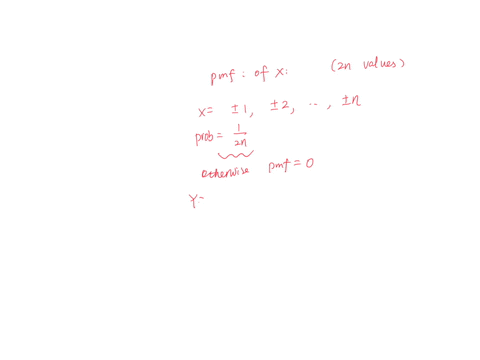 pmf : of X: (2n values)
x= ±1, ±2, ..., ±n
prob = 1/2n
otherwise pmf = 0
Y=